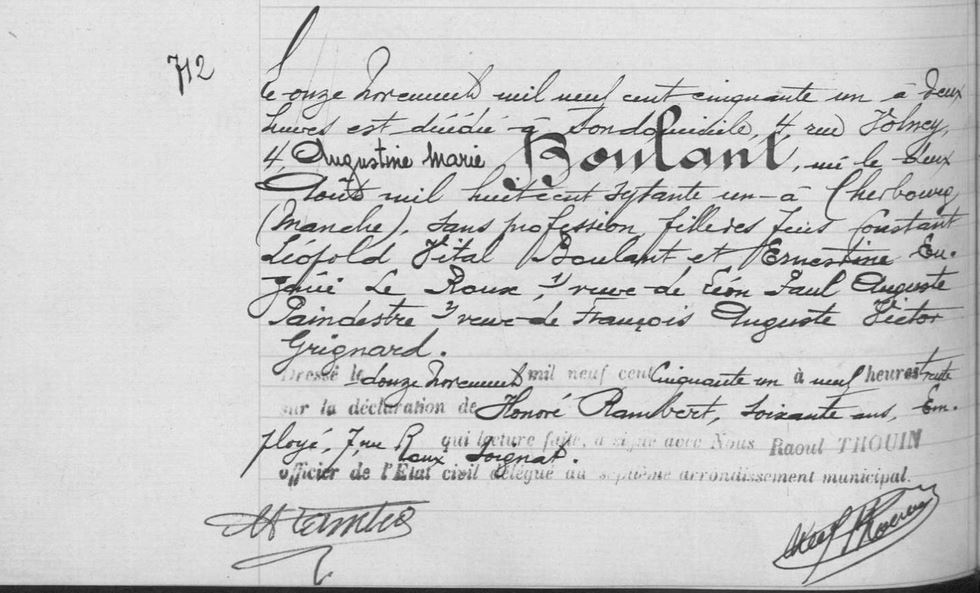 712
Le onze novembre mil neuf cent cinquante un à deux
heures est décédé à son domicile, 4, rue Volney,
4, Augustine Marie Boulant, née le deux
Août mil huit cent septante un à Cherbourg
(Manche), sans profession, fille des feus Constant
Léopold Vital Boulant et Ernestine Eu-
génie Le Roux, 1/ veuve de Léon Paul Auguste
Paindestre 2/ veuve de François Auguste Victor
Grignard.
Dressé le douze novembre mil neuf cent cinquante un à neuf heures trente
sur la déclaration de Honoré Rambert, soixante ans, Em-
ployé, 7, rue Roux Soignat.
qui lecture faite, a signé avec Nous Raoul THOUIN
officier de l'Etat civil délégué au septième arrondissement municipal.